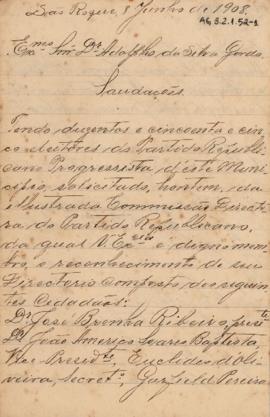 São Roque, 8 Junho de 1908.
AG 3.2.1.52-1
Exmo Snr. Dr. Adolpho da Silva Gordo.
Saudações.
Tendo duzentos e cincoenta e cin-
co eleitores do Partido Republi-
cano Progressista d'este Muni-
cipio, solicitado, hontem, da
illustrada Commissão Directo-
ra do Partido Republicano,
da qual V. Excia é digno mem-
bro, o reconhecimento de seu
Directorio composto dos seguin-
tes Cidadãos:
Dr José Brenha Ribeiro, preste
Dr João Americo Soares Baptista,
Vice Presidte, Euclides d'Oli-
veira, Secreto, Garfield Pereira